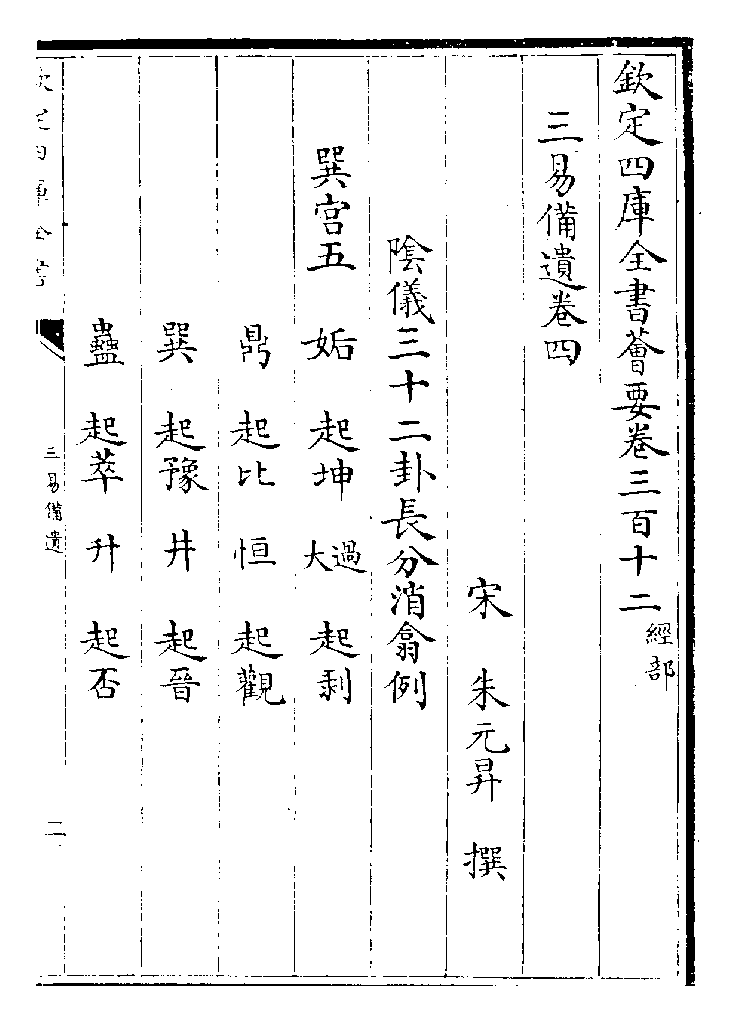 欽定四庫全書薈要卷三百十二 經部
三易備遺卷四
宋 朱元昇 撰
陰儀三十二卦長分消翕例
巽宫五 姤 起坤 大過 起剥
鼎 起比 恒 起觀
巽 起豫 井 起晉
蠱 起萃 升 起否
欽定四庫全書
三易備遺
二